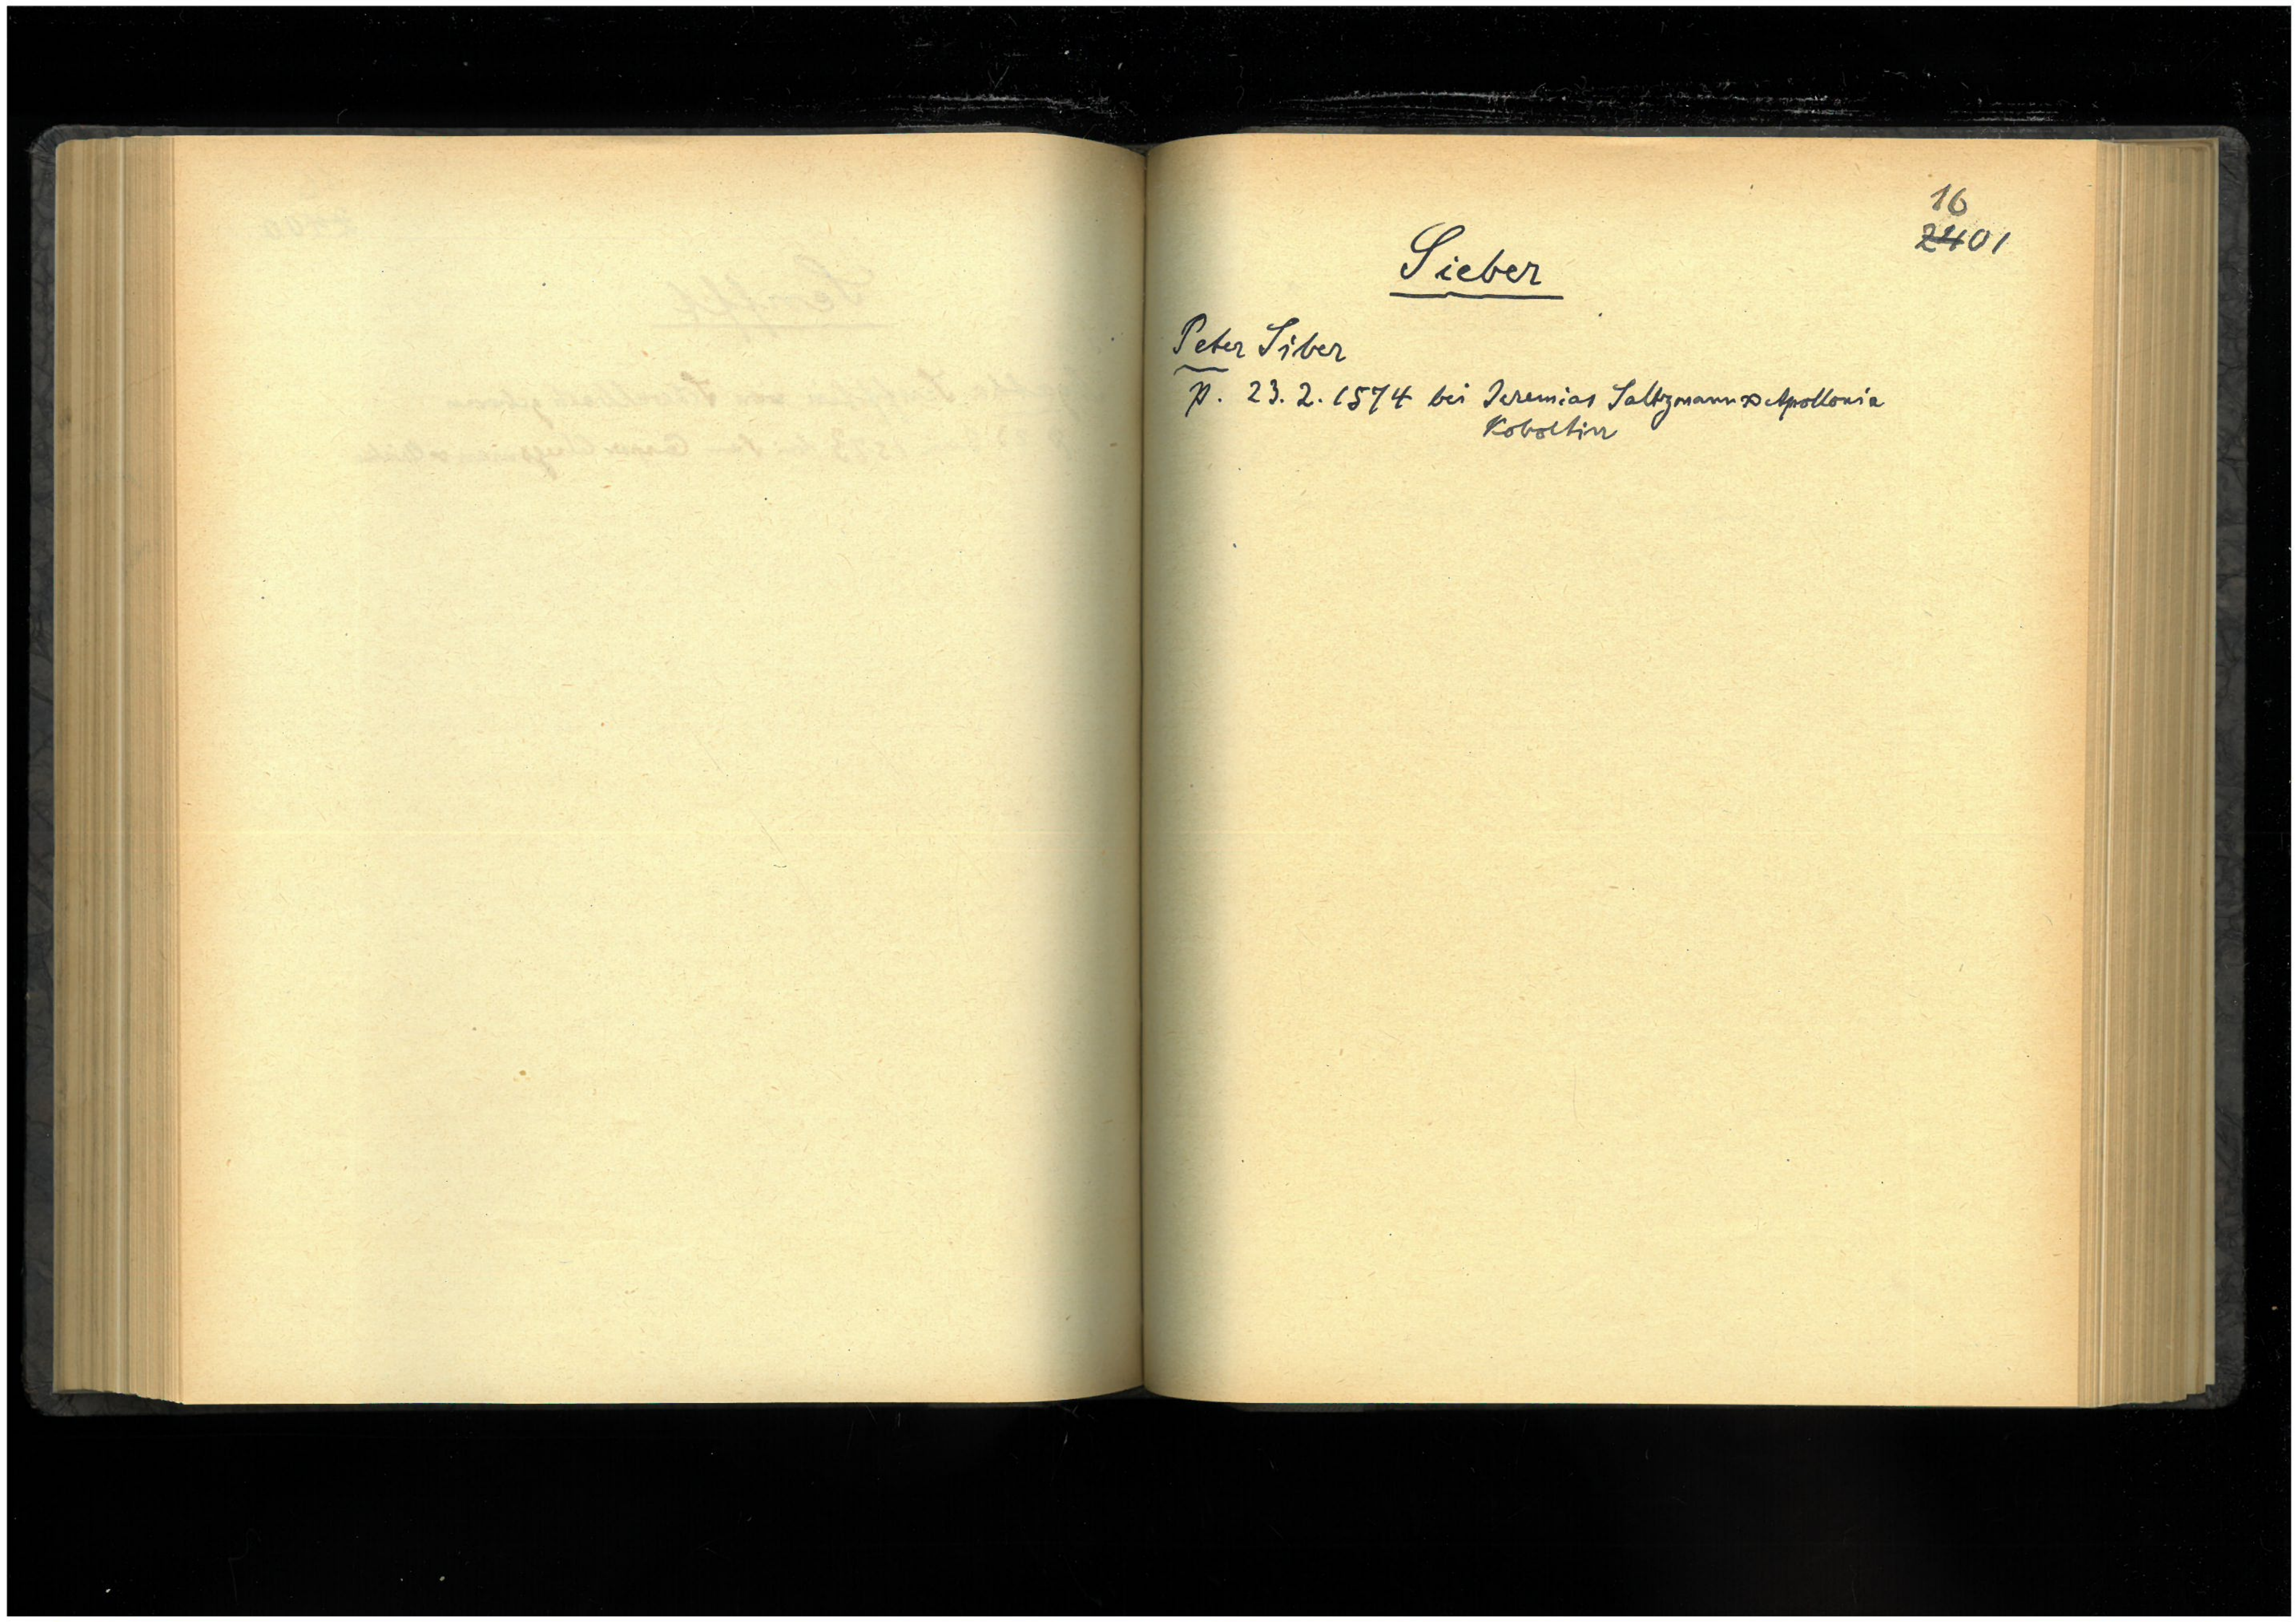 16
2401
Sieber
Peter Siber
p. 23. 2. 1574 bei Jeremias Saltzmann ⚭ Apollonia
Koboltin